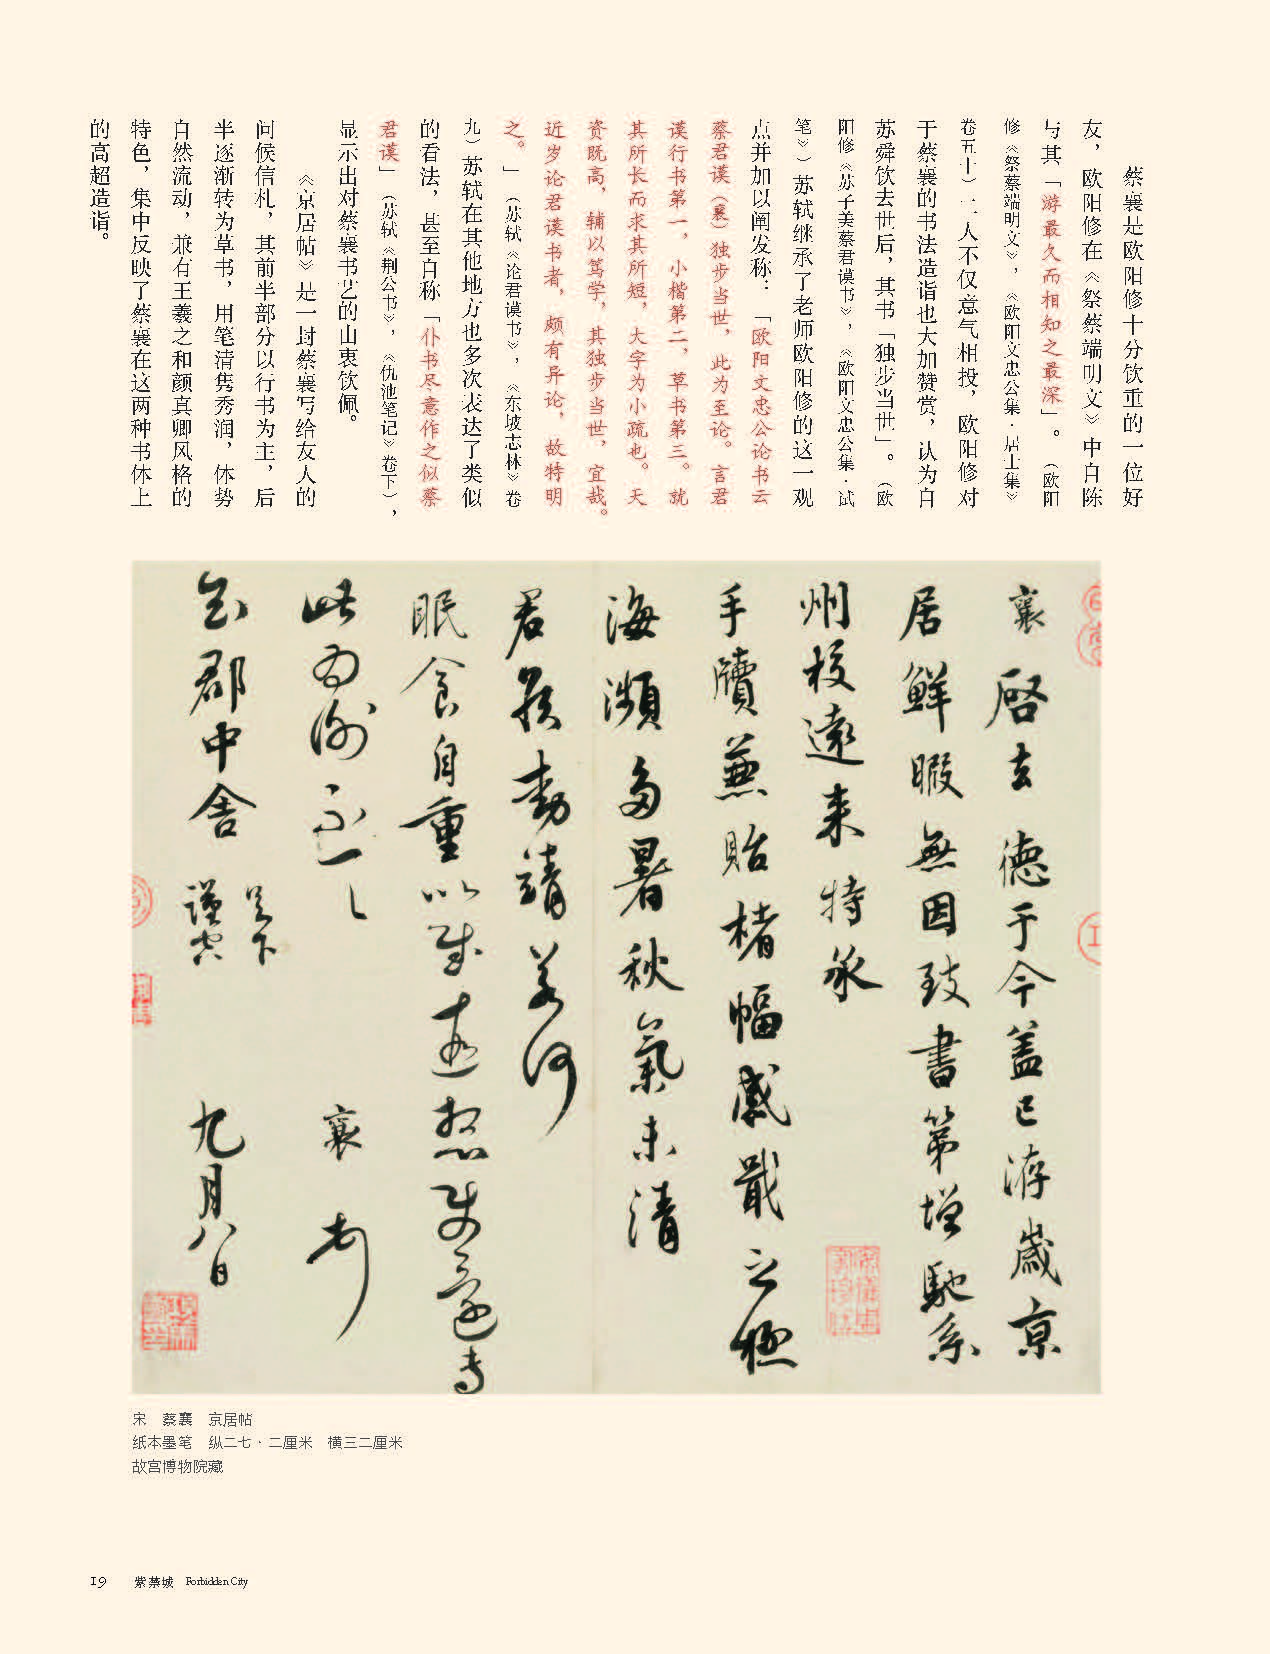 蔡襄是欧阳修十分钦重的一位好
友，欧阳修在《祭蔡端明文》中自陈
与其「游最久而相知之最深」。（欧阳
修《祭蔡端明文》，《欧阳文忠公集·居士集》
卷五十）二人不仅意气相投，欧阳修对
于蔡襄的书法造诣也大加赞赏，认为自
苏舜钦去世后，其书「独步当世」。（欧
阳修《苏子美蔡君谟书》，《欧阳文忠公集·试
笔》）苏轼继承了老师欧阳修的这一观
点并加以阐发称：「欧阳文忠公论书云
蔡君谟（襄）独步当世，此为至论。言君
谟行书第一，小楷第二，草书第三。就
其所长而求其所短，大字为小疏也。天
资既高，辅以笃学，其独步当世，宜哉。
近岁论君谟书者，颇有异论，故特明
之。」（苏轼《论君谟书》，《东坡志林》卷
九）苏轼在其他地方也多次表达了类似
的看法，甚至自称「仆书尽意作之似蔡
君谟」（苏轼《荆公书》，《仇池笔记》卷下），
显示出对蔡襄书艺的由衷钦佩。
《京居帖》是一封蔡襄写给友人的
问候信札，其前半部分以行书为主，后
半逐渐转为草书，用笔清隽秀润，体势
自然流动，兼有王羲之和颜真卿风格的
特色，集中反映了蔡襄在这两种书体上
的高超造诣。
襄啓去德于今盖已洊歲京
居鮮暇無因致書第增馳系
州校遠来特承
手牘兼貽楮幅感戢之極
海瀕多暑秋氣未清
君侯動靖若何
眠食自重以慰遠想
此為謝不一一 襄頓首
郡中舍 足下
謹空
九月八日
宋 蔡襄 京居帖
纸本墨笔 纵二七·二厘米 横三二厘米
故宫博物院藏
19 紫禁城 Forbidden City